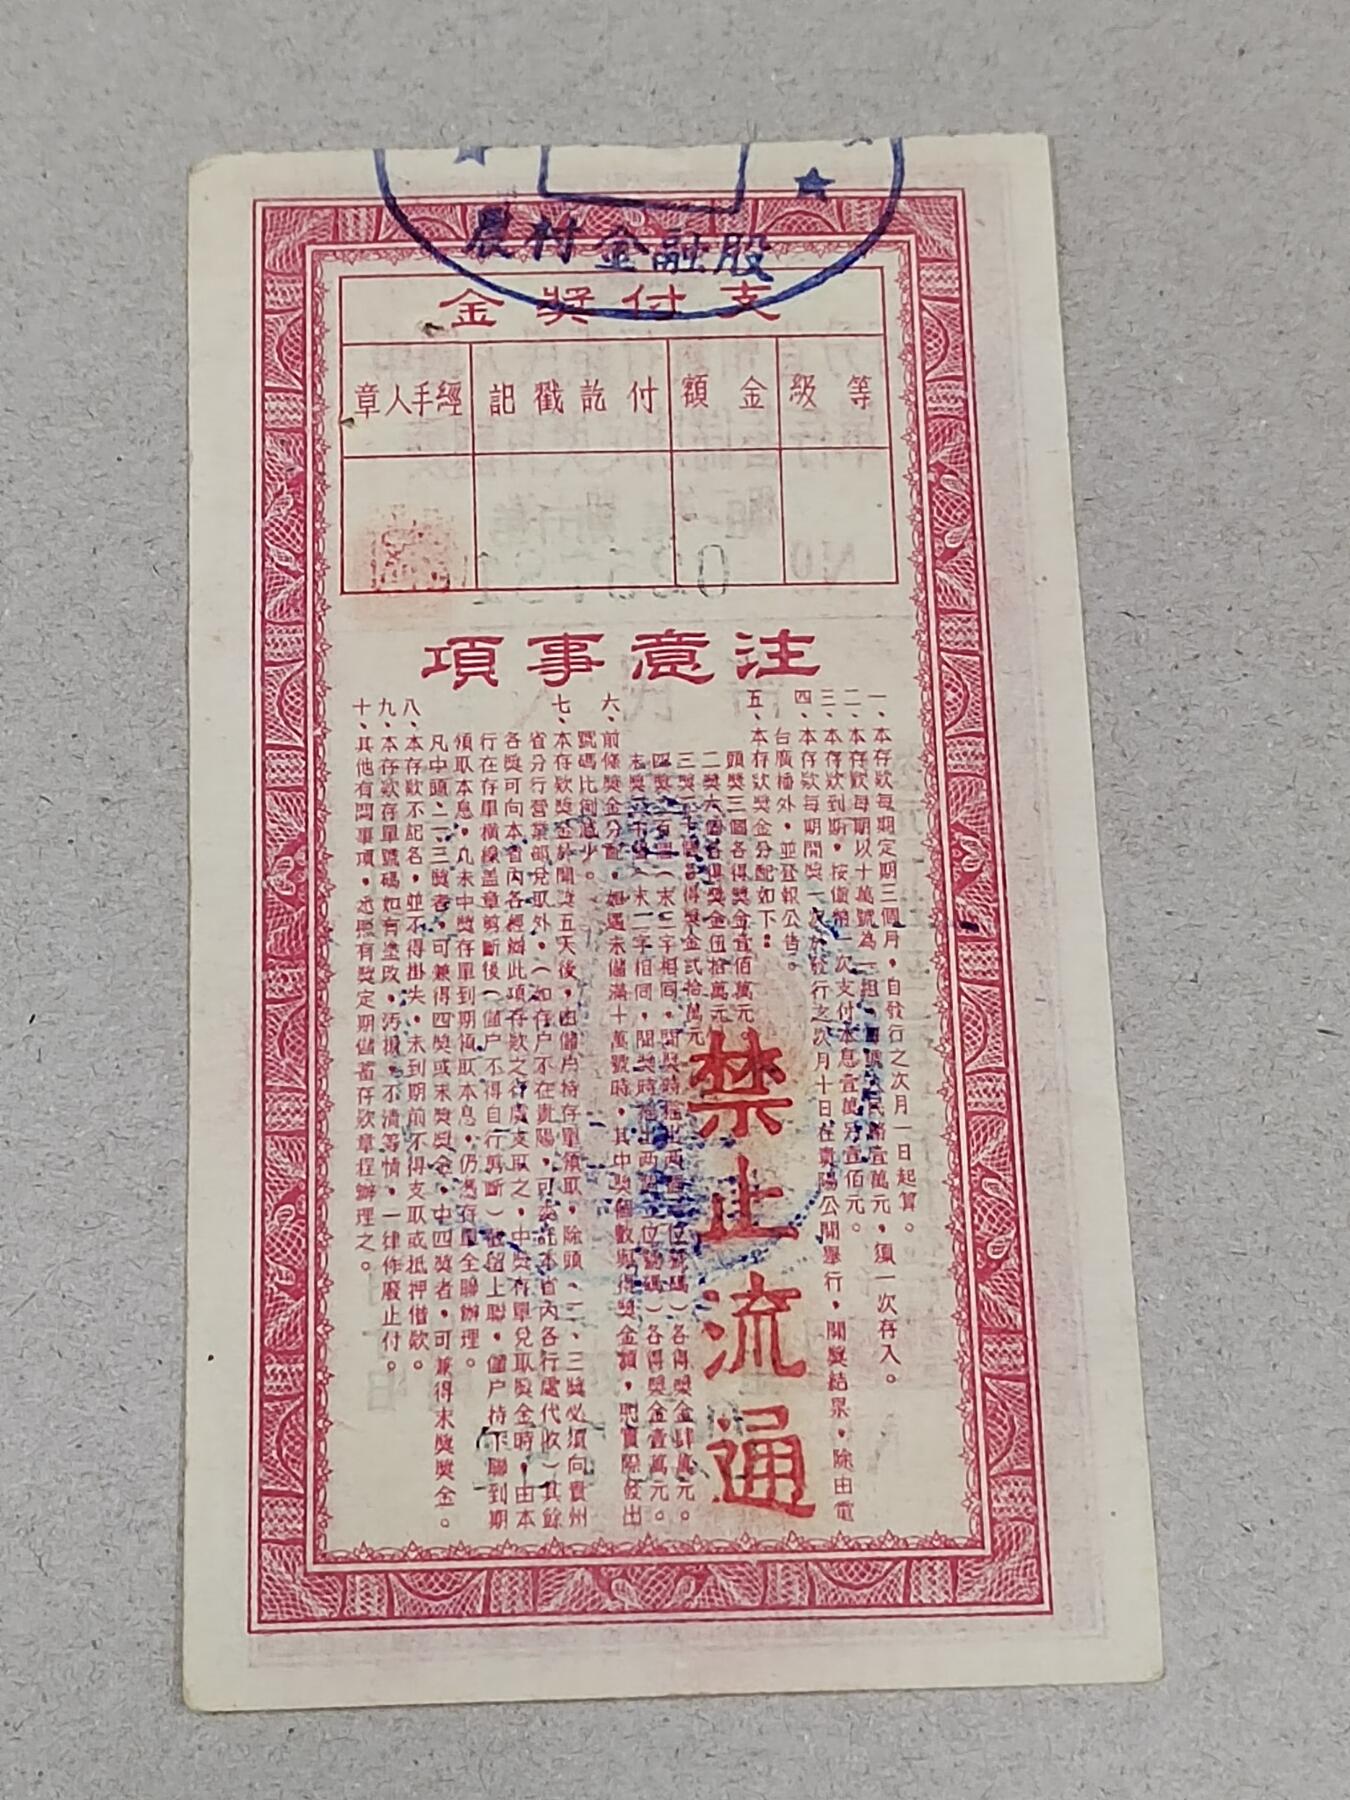 農村金融股
支付獎金
等級
金額
付訖戳記
經手人章
注意事項
一、本存欵每期定期三個月，自發行之次月一日起算。
二、本存欵每期以十萬號為一組，人民幣壹萬元，須一次存入。
三、本存欵到期，按儀幣一次支付本息壹萬另壹佰元。
四、本存欵每期開獎一次於發行之次月十日在貴陽公開舉行，開獎結果，除由電
台廣播外，並登報公告。
五、本存欵獎金分配如下：
頭獎三個各得獎金壹佰萬元
二獎六個各得獎金伍拾萬元
三獎 各得獎金弍拾萬元
四獎 百個（末三字相同，開獎時 出兩 位號碼）各得獎金肆萬元。
末獎 千個（末二字相同，開獎時 出两 位號碼）各得獎金壹萬元。
六、前條獎金分配，如遇未儲滿十萬號時，其中獎個數與得獎金額，照實際發出
號碼比例減少。
七、本存欵獎金於開獎五天後，由儲戶持存單領取，除頭、二、三獎必須向貴州
省分行營業部兌取外，（如存户不在貴陽，可委託本省內各行處代收）其餘
各獎可向本省內各經辦此項存欵之行處支取之，中獎存單兌取獎金時，由本
行在存單橫線盖章剪斷後（儲户不得自行剪斷）收留上聯，儲户持下聯到期
領取本息，凡未中獎存單到期領取本息，仍憑存單全聯辦理。
凡中頭、二、三獎者，可兼得四獎或末獎獎金，中四獎者，可兼得末獎獎金。
八、本存欵不記名，並不得掛失，未到期前不得支取或抵押借欵。
九、本存欵存單號碼如有塗改，汚損，不清等情，一律作廢止付。
十、其他有関事項，悉照有獎定期儲蓄存欵章程辦理之。
禁止流通